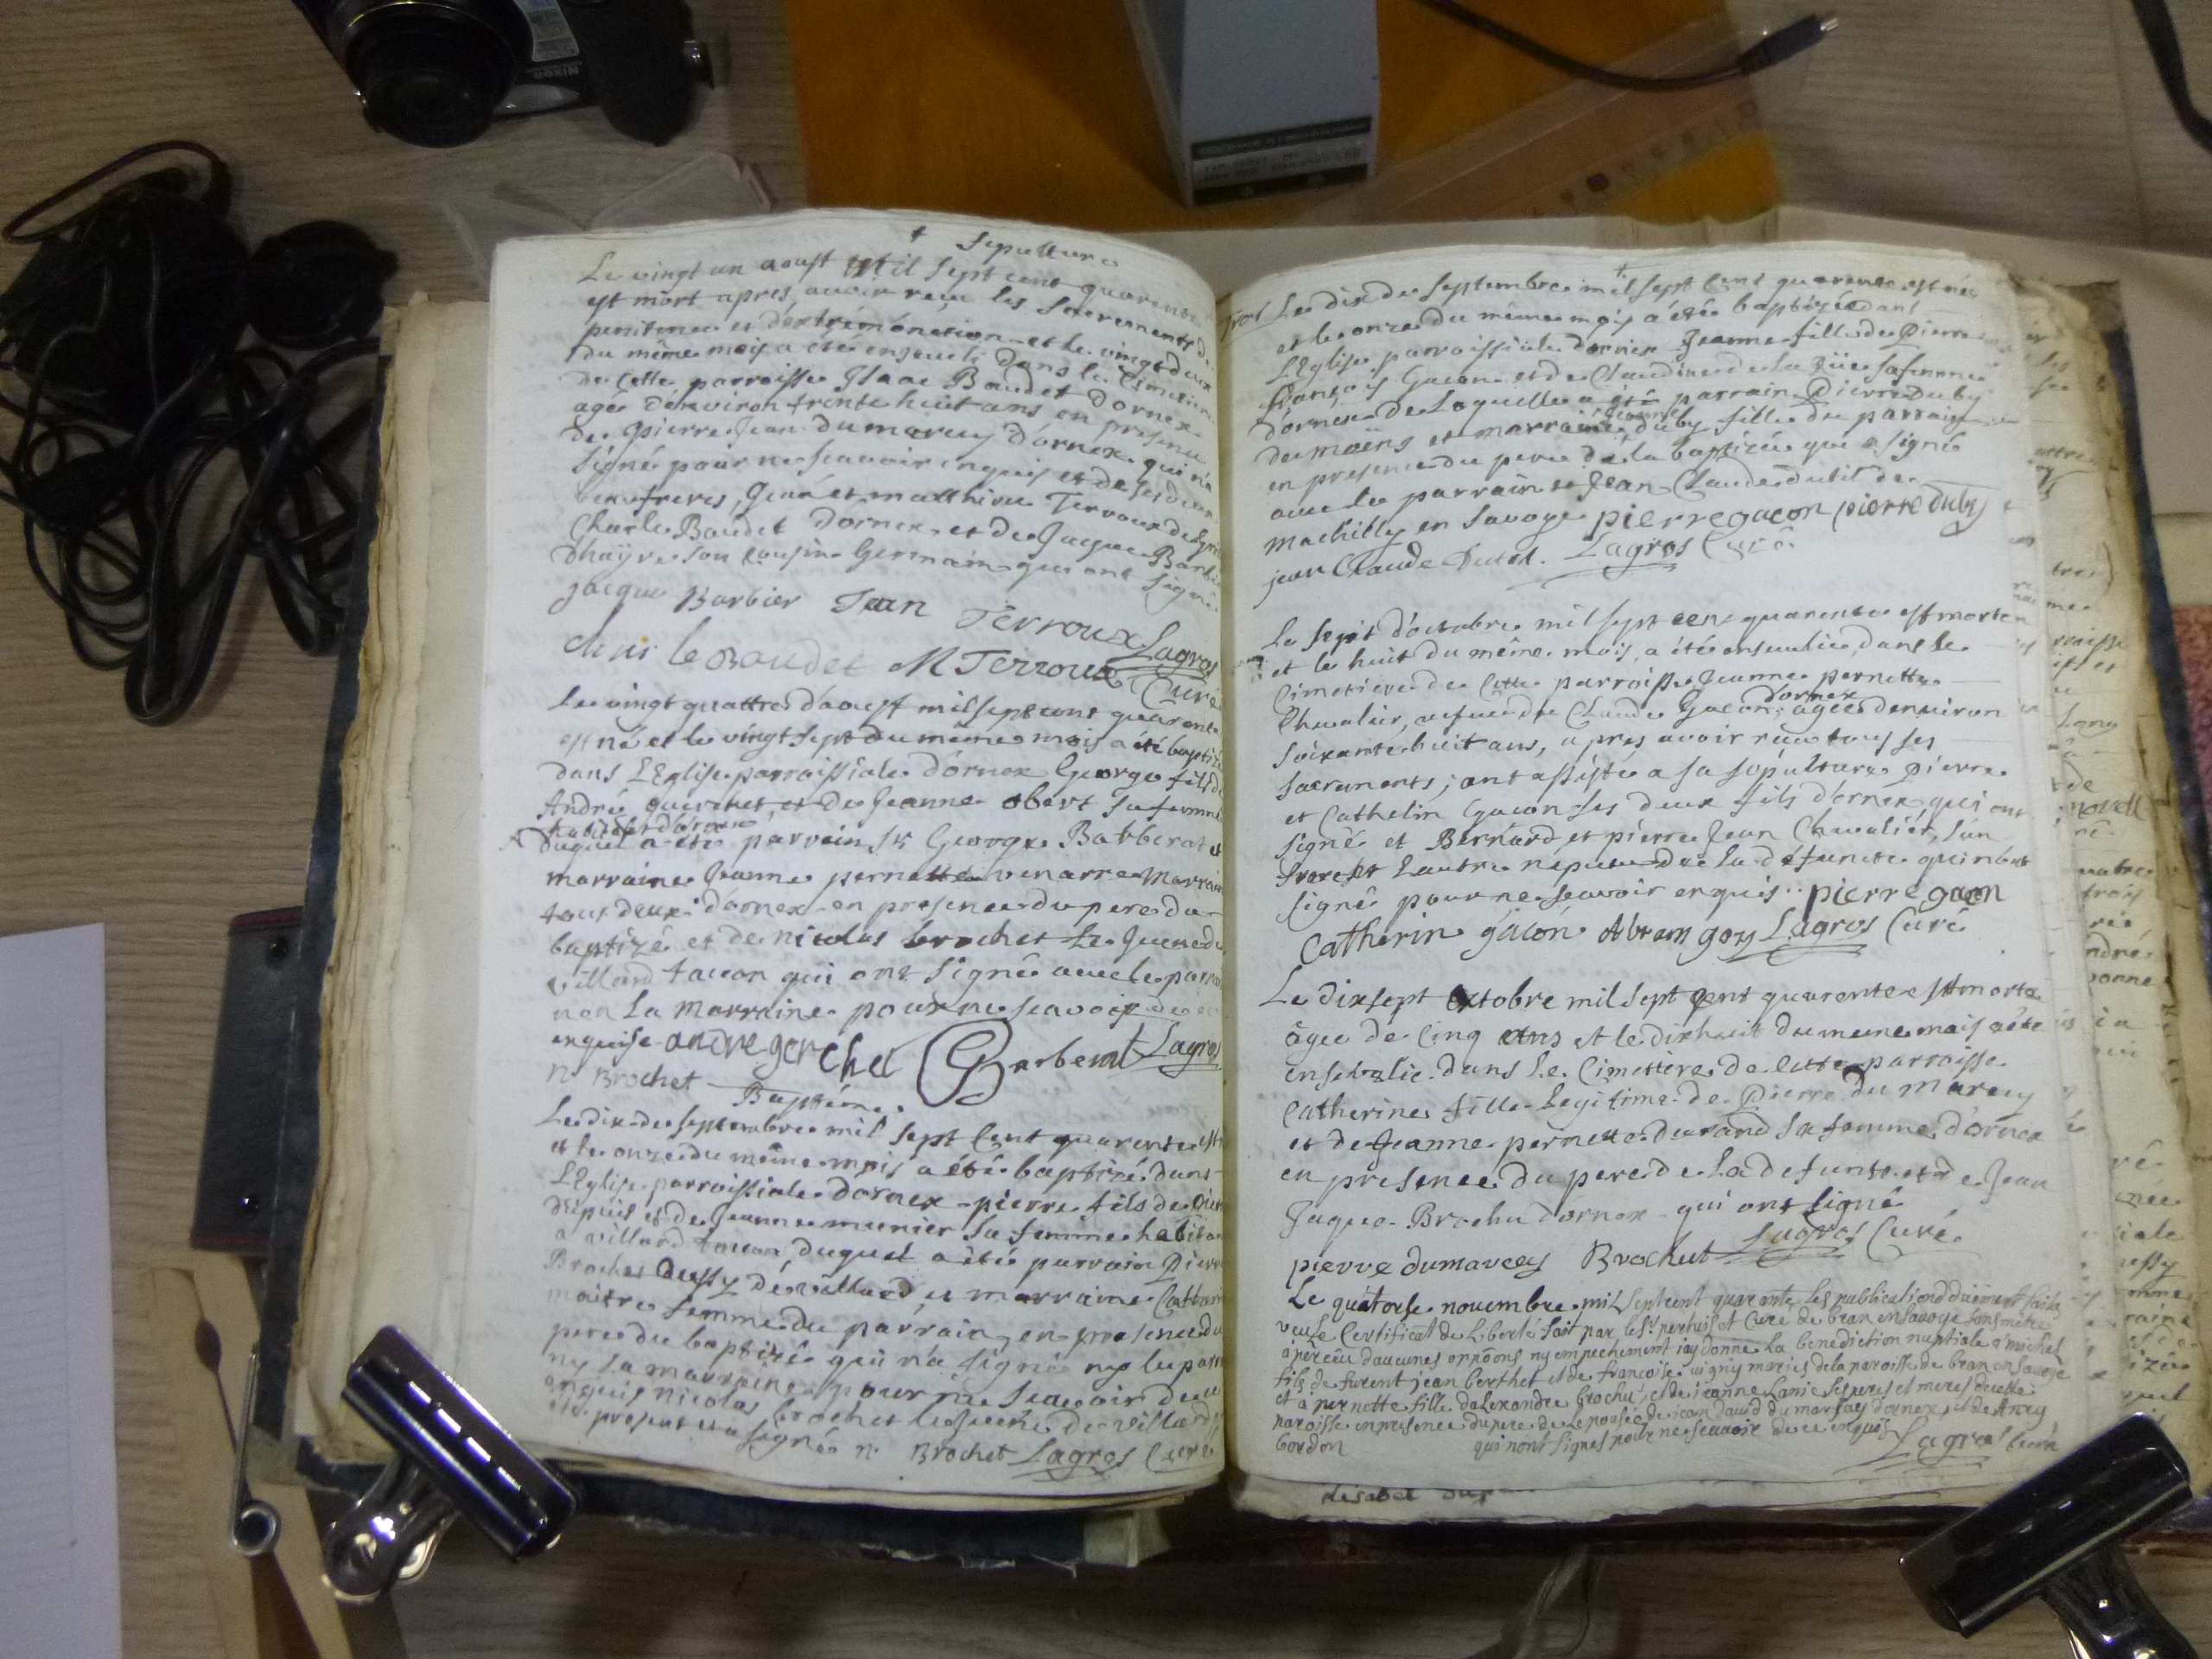 Nikon
+ Sepulture
Le vingt un aoust mil Sept cent quarente
est mort apres avoir reçu les Sacrements de
penitence et d'extrémonction et le vingt deux
du même mois a été enseveli dans le Cimetiere
de Cette parroisse Isaac Baudet dornex
agé denviron trente huit ans en presence
de pierre Jean Dumarcey d'ornex qui n'a
signé pour ne scavoir enquis et de ses deux
beaufreres, Jean et matthieu Terroux de
Charle Baudet dornex et de Jaque Barbier
son cousin Germain qui ont signé
Jacque Barbier Jean Terroux Lagros
charle Baudet M Terroux Curé
Le vingt quattre d'aoust mil sept cent quarente
est né et le vingt sept du même mois a été baptizé
dans L'Eglise parroissiale d'ornex George fils de
André guerchet et de Jeanne obert sa femme
habitant d'ornex
Duquel a été parrain Sr George Barberat et
marraine Jeanne pernette
tous deux d'ornex en presence du pere du
baptizé et de nicolas brochet Le Jeune de
villard tacon qui ont Signé avec le parrain
non La Marraine pour ne scavoir de ce
enquise andre gerchet G Barberat Lagros
n. Brochet
Baptême
Le dix de septembre mil sept Cent quarente est né
et le onze du même mois a été baptizé dans
L'Eglise parroissiale d'ornex pierre fils de
Depuis et de Jeanne munier sa femme habitant
a villard tacon, duquel a été parrain Pierre
Brochet de villard et marraine Catherine
maitre femme du parrain, en presence du
pere du baptizé qui n'a signé ny le parrain
ny sa marraine pour ne scavoir de ce
enquis nicolas brochet le Jeune de villard
present et a signé n. Brochet Lagros Curé
+
Le dix de Septembre mil sept Cent quarente est née
et le onze du même mois a été baptizée dans
L'Eglise parroissiale d'ornex Jeanne fille de Pierre
françois Gacon et de Claudine de la Rüe sa femme
d'ornex de Laquelle a été parrain Pierre Duby
de moëns et marraine Jeanne Duby fille du parrain
en presence du pere de la baptizée qui a signé
avec le parrain et Jean Claude dutil de
machilly en Savoye pierre gacon pierre duby
jean Claude Dutil. Lagros Curé
Le Sept d'octobre mil sept cent quarente est morte
et le huit du même mois, a été ensevelie, dans le
Cimetiere de Cette parroisse Jeanne pernette
Chevalier, veuve de Claude Gacon d'ornex agée denviron
soixante huit ans, apres avoir reçu tous ses
sacrements; ont assisté a sa sépulture pierre
et Cathelin Gacon ses deux fils d'ornex qui ont
signé et Bernard et pierre Jean Chevaliér, l'un
frere et Lautre neveu de la défunte qui n'ont
signé pour ne scavoir enquis. pierre gacon
Catherin gacon Abram goy Lagros Curé
Le dixsept octobre mil sept cent quarente est morte
âgée de Cinq ans et le dixhuit du meme mois a été
ensevelie dans le Cimetiere de Cette parroisse
Catherine fille Legitime de Pierre du Marcey
et de Jeanne pernette durand sa femme d'ornex
en presence du pere de La defunte et de Jean
Jaque Brochu d'ornex qui ont signé
pierre dumarcey Brochut Lagros Curé
Le quatorse novembre mil sept cent quarante, les publications duement faites
veu le Certificat de Liberté fait par le Sr perthuiset Curé de bran en Savoye sans
apercu daucunes oppoons ny empechement iay donné La benediction nuptiale a michel
fils de furent jean berthet et de francoise mariés de la paroisse de bran en Savoye
et a pernette fille dalexandre brochu et de jeanne ses peres et meres de cette
paroisse en presence du pere de Lepousée de jean david du marsay d'ornex et de
bordon qui n'ont signés pour ne scavoir de ce enquis Lagros Curé